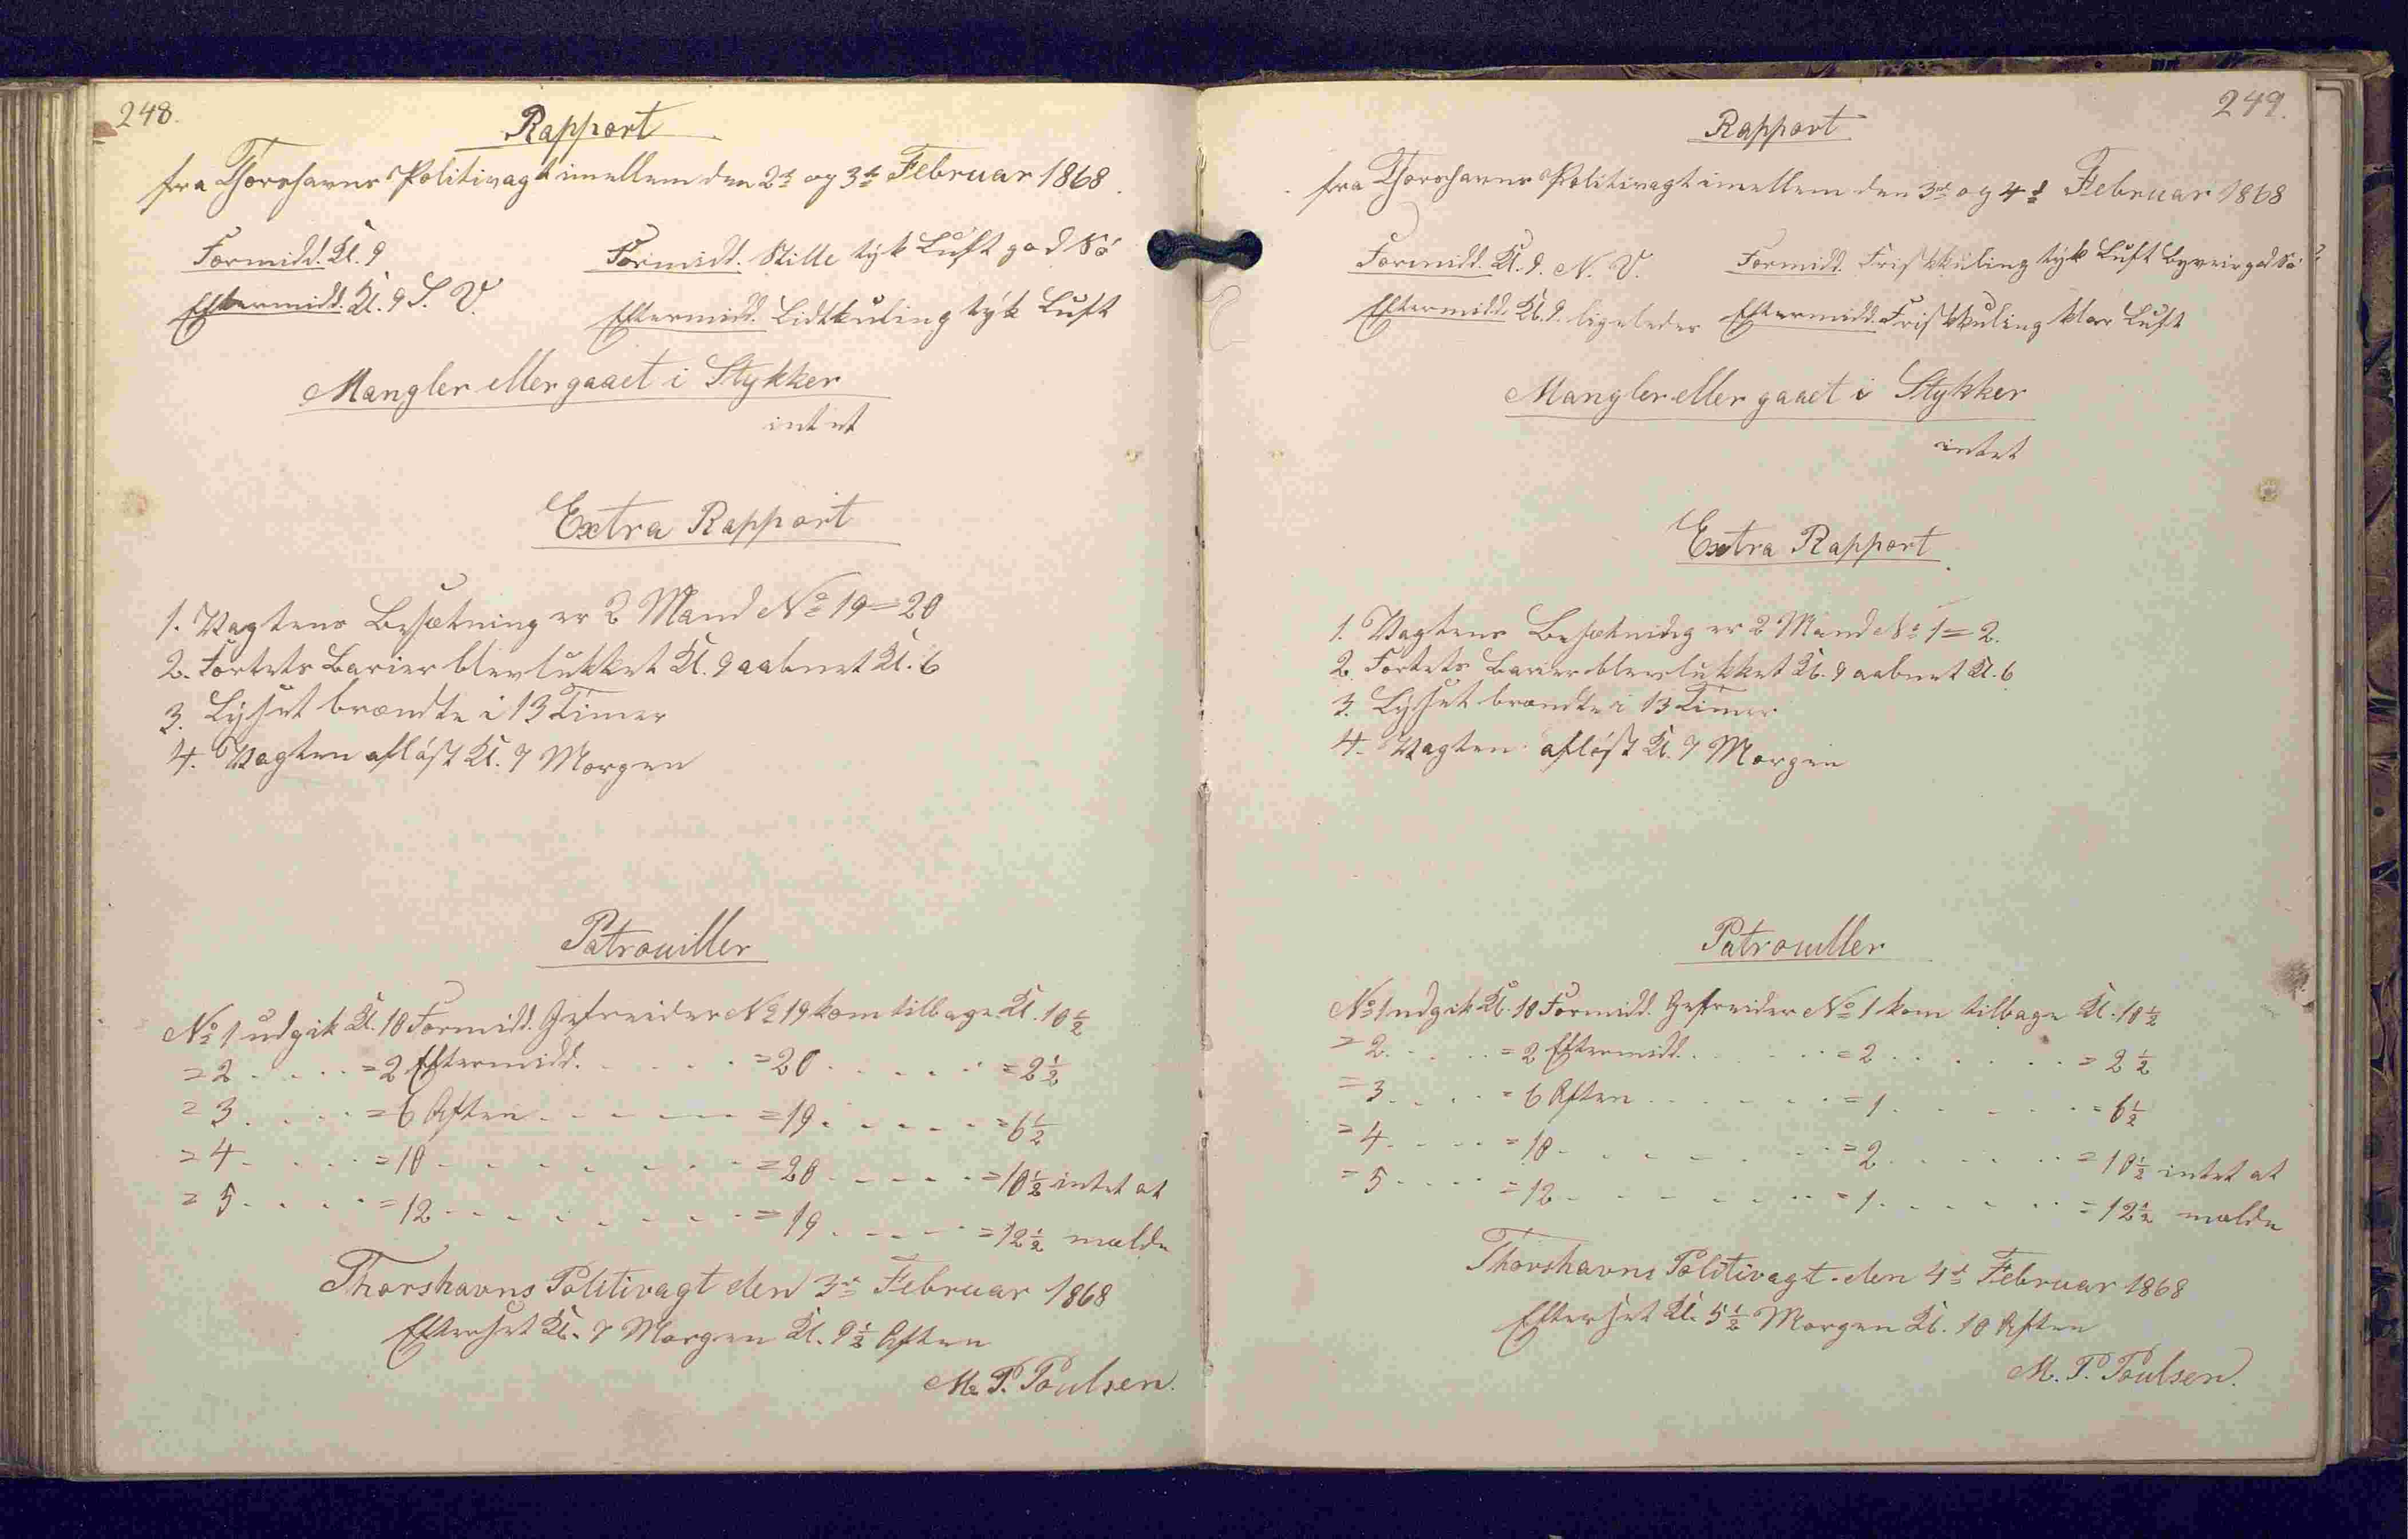 248.
Rapport
fra Thorshavns Politivagt imellem den 2d og 3d Februar 1868.
Formidd. Kl. 9
Formidd. Stille tyk Luft god Sö
Eftermidd. Kl. 9 S. V.
Eftermidd. Lidtkuling tyk Luft
Mangler eller gaaet i Stykker
intet
Extra Rapport
1. Vagtens Besætning er 2 Mand No 19 = 20
2. Fortets Barier blev lukket Kl. 9 aabnet Kl. 6
3. Lyset brændte i 13 Timer
4. Vagten aflöst Kl. 7 Morgen
Patrouiller
No 1 udgik Kl. 10 Formidd. Gefreider No 19 kom tilbage Kl. 10 1/2
= 2 . . . . = 2 Eftermidd. . . . . = 20 . . . . . = 2 1/2
= 3 . . . . = 6 Aften . . . . . = 19 . . . . . = 6 1/2
= 4 . . . . = 10 . . . . . . . . = 20 . . . . . = 10 1/2 intet at
= 5 . . . . = 12 . . . . . . . . = 19 . . . . . = 12 1/2 melde
Thorshavns Politivagt den 3d Februar 1868
Efterset Kl. 7 Morgen Kl. 9 1/2 Aften
M. P. Poulsen.
249.
Rapport
fra Thorshavns Politivagt imellem den 3d og 4d Februar 1868
Formidd. Kl. 9. N. V.
Formidd. Friskkuling tyk Luft Byveir god Sö
Eftermidd. Kl. 9. ligeledes
Eftermidd. Friskkuling klar Luft
Mangler eller gaaet i Stykker
intet
Extra Rapport
1. Vagtens Besætning er 2 Mand No 1 = 2.
2. Fortets Barier blev lukket Kl. 9 aabnet Kl. 6
3. Lyset brændte i 13 Timer
4. Vagten aflöst Kl. 7 Morgen
Patrouiller
No 1 udgik Kl. 10 Formidd. Gefreider No 1 kom tilbage Kl. 10 1/2
= 2 . . . . = 2 Eftermidd. . . . . . = 2 . . . . . . = 2 1/2
= 3 . . . . = 6 Aften . . . . . . = 1 . . . . . . = 6 1/2
= 4 . . . . = 10 . . . . . . . . = 2 . . . . . . = 10 1/2 intet at
= 5 . . . . = 12 . . . . . . . . = 1 . . . . . . = 12 1/2 melde
Thorshavns Politivagt den 4d Februar 1868
Efterset Kl. 5 1/2 Morgen Kl. 10 Aften
M. P. Poulsen.